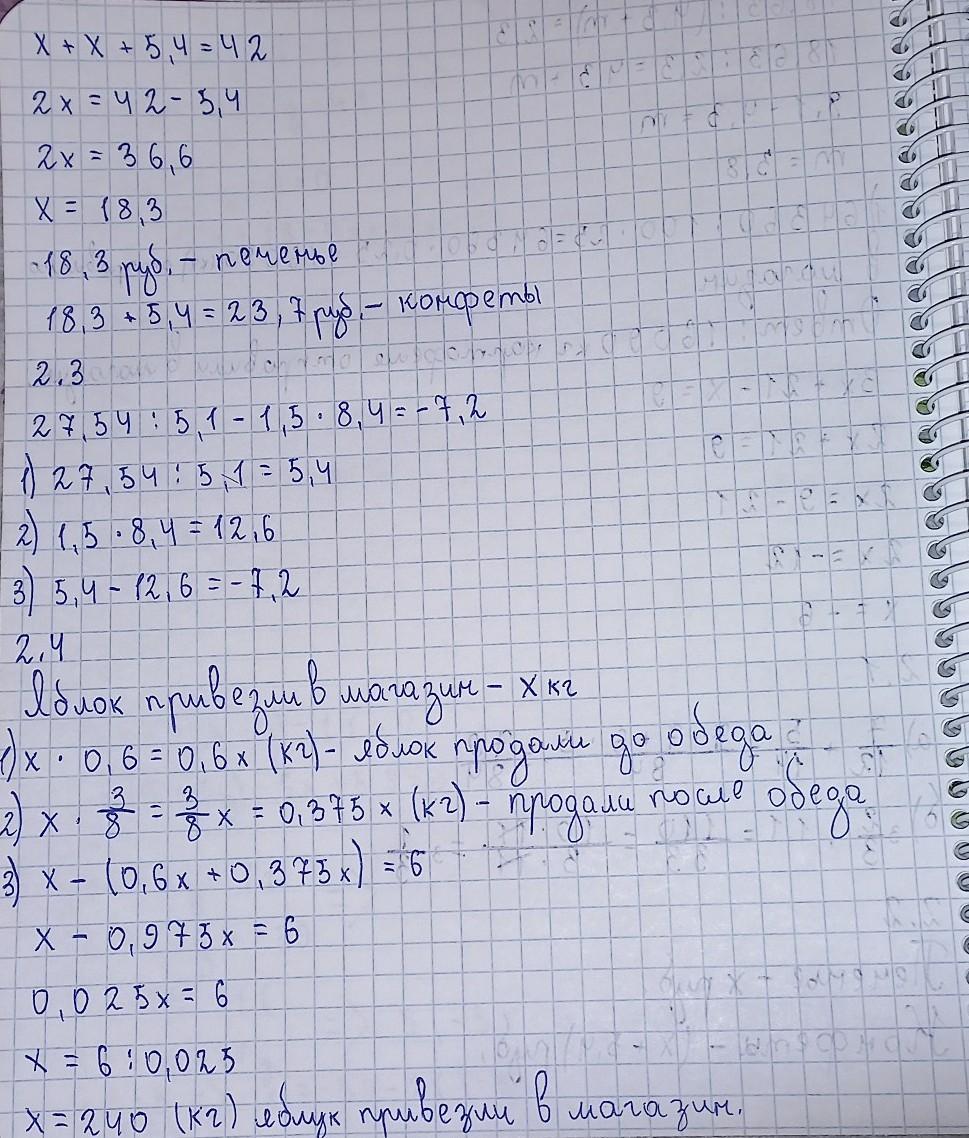 x + x + 5,4 = 42
2x = 42 - 5,4
2x = 36,6
x = 18,3
18,3 руб. - печенье
18,3 + 5,4 = 23,7 руб. - конфеты
2.3
27,54 : 5,1 - 1,5 · 8,4 = -7,2
1) 27,54 : 5,1 = 5,4
2) 1,5 · 8,4 = 12,6
3) 5,4 - 12,6 = -7,2
2.4
Яблок привезли в магазин - x кг
1) x · 0,6 = 0,6x (кг) - яблок продали до обеда
2) x · 3/8 = 3/8 x = 0,375x (кг) - продали после обеда
3) x - (0,6x + 0,375x) = 6
x - 0,975x = 6
0,025x = 6
x = 6 : 0,025
x = 240 (кг) яблук привезли в магазин.